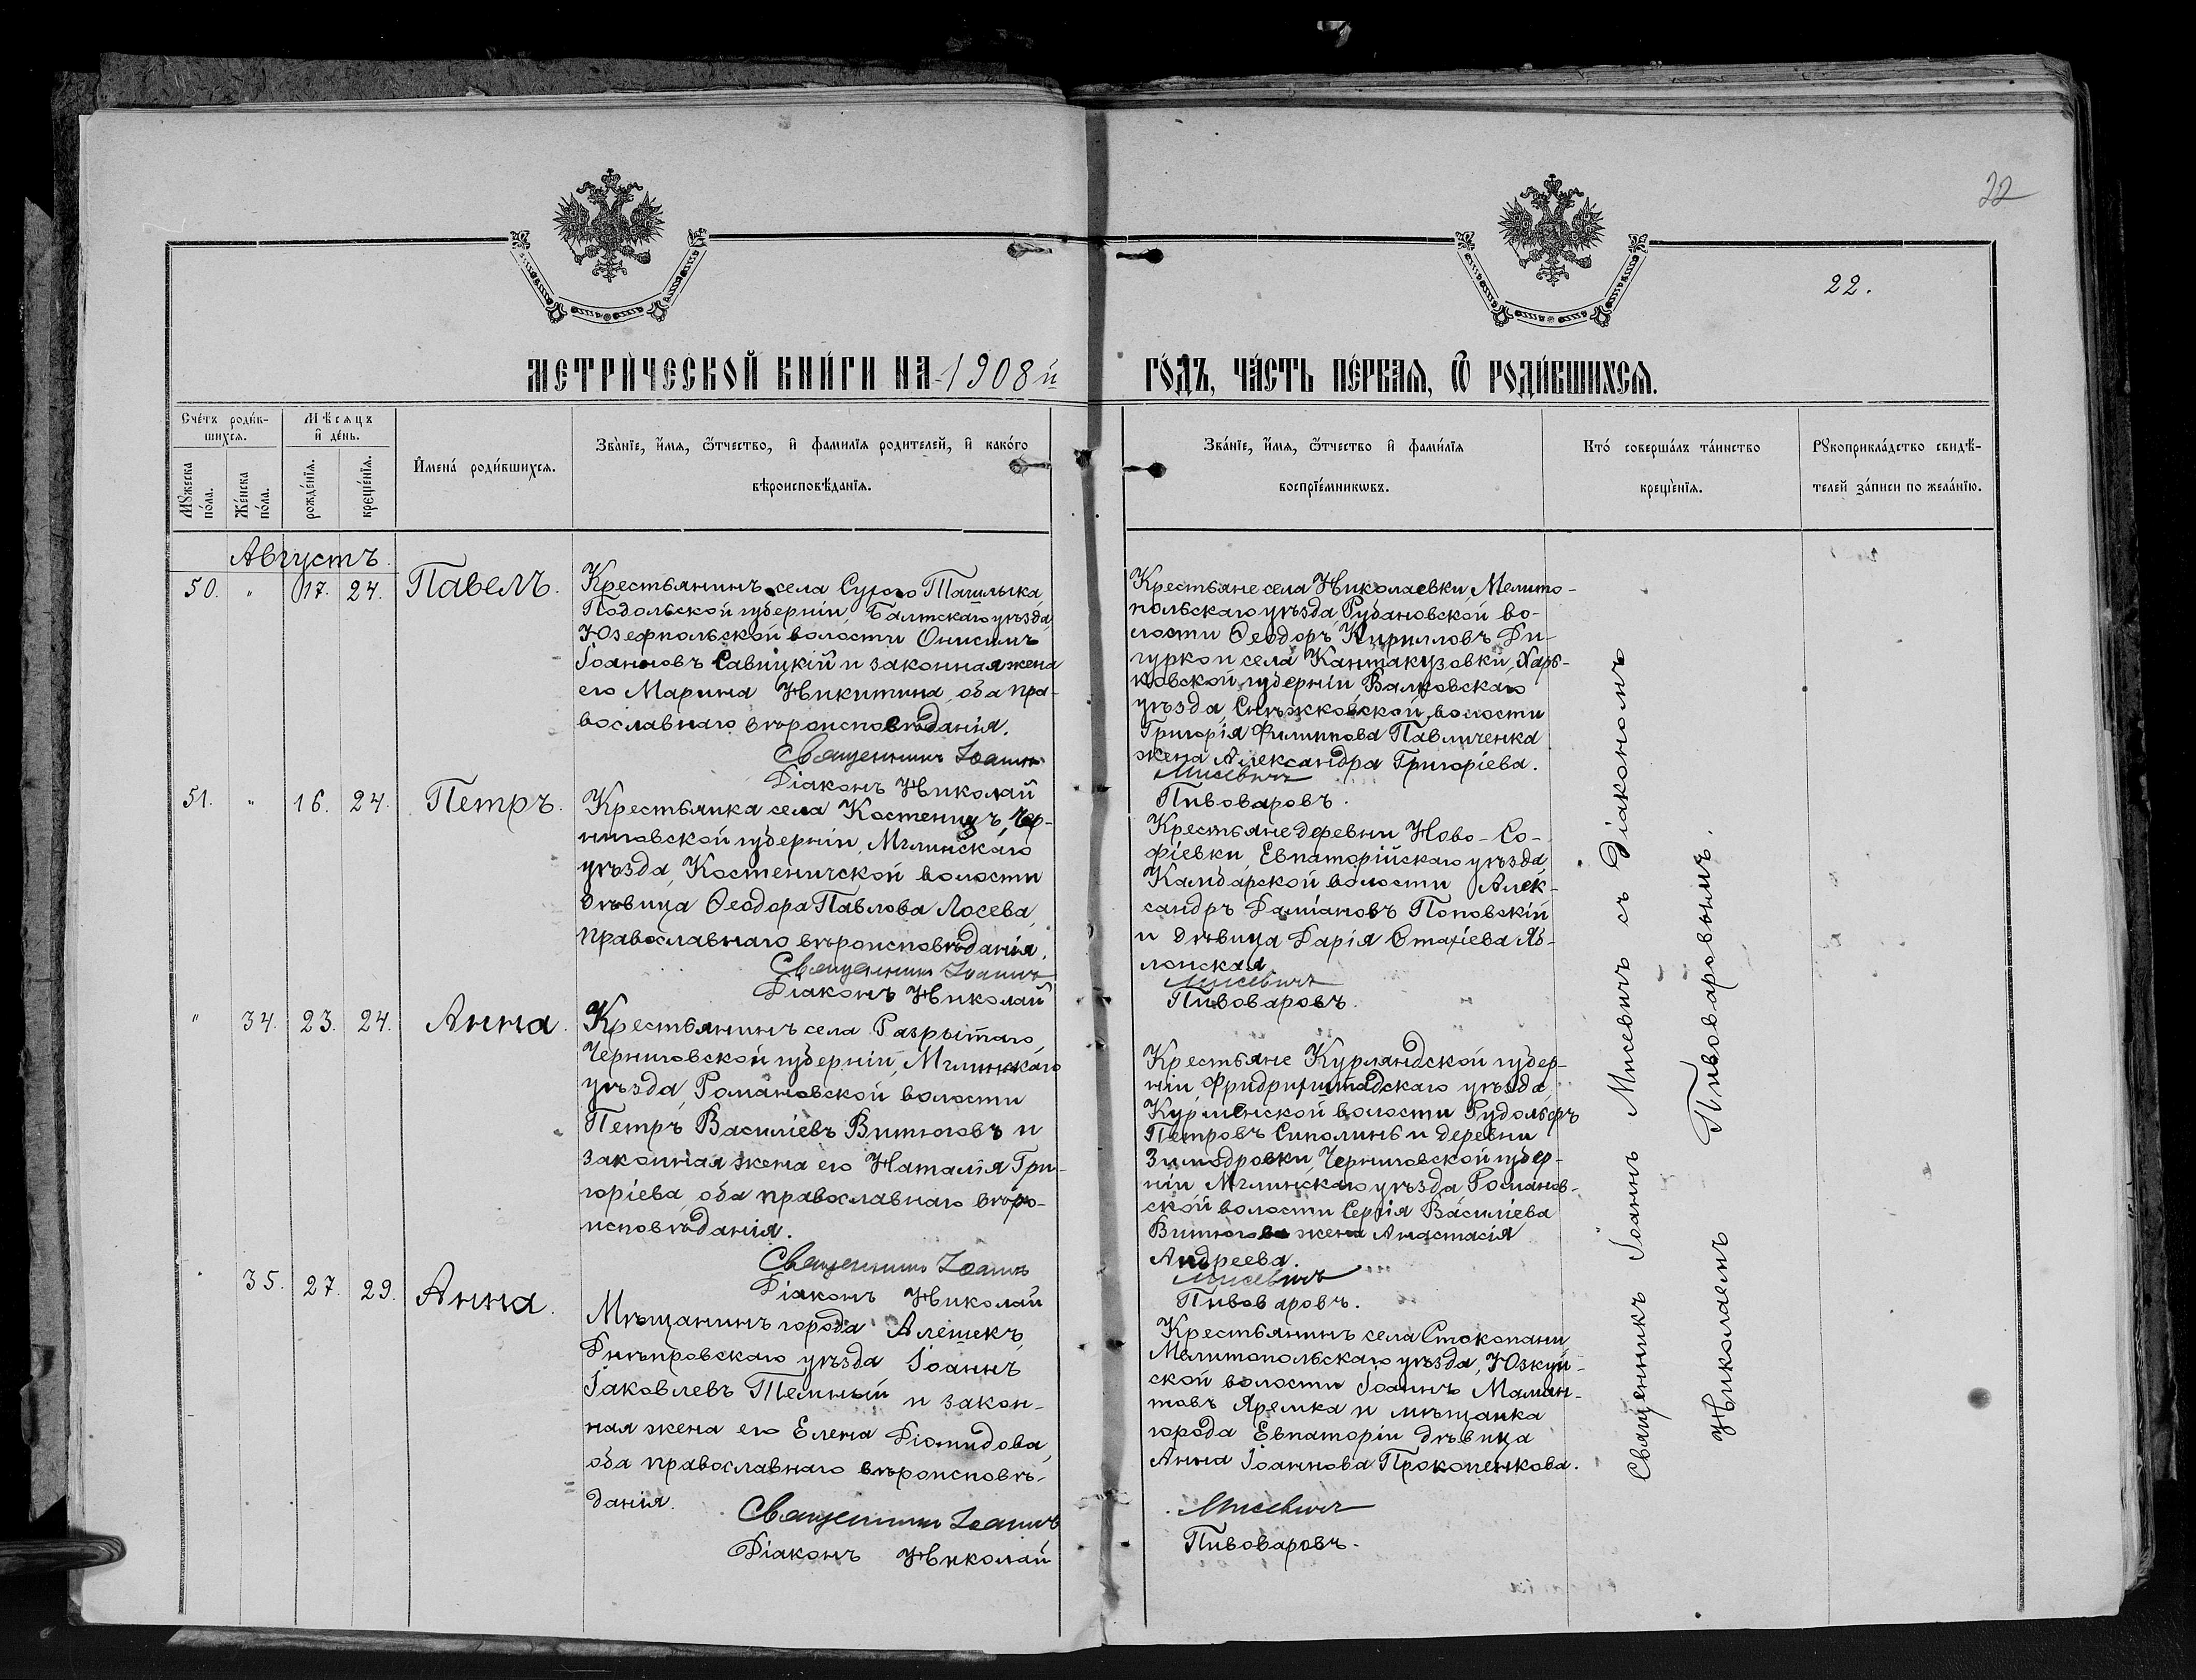 22
22.
МЕТРИЧЕСКОЙ КНИГИ НА 1908й ГОДЪ, ЧАСТЬ ПЕРВАЯ, Ѿ РОДИВШИХСЯ.
Счетъ родив-
шихся.
Мѣсяцъ
и день.
Мужеска
пола.
Женска
пола.
рожденїя.
крещенїя.
Имена родившихся.
Званїе, имя, ѿтчество, и фамилїя родителей, и какого
вѣроисповѣданїя.
Званїе, имя, ѿтчество и фамилїя
воспрїемниковъ.
Кто совершалъ таинство
крещенїя.
Рукоприкладство свидѣ-
телей записи по желанїю.
Августъ.
50. " 17. 24. Павелъ.
Крестьянинъ села Сухого Ташлыка
Подольской губерніи, Балтскаго уѣзда,
Юзефпольской волости Онисимъ
Іоанновъ Савицкій и законная жена
его Марина Никитина, оба пра-
вославнаго вѣроисповѣданія.
Священникъ Іоаннъ
Діаконъ Николай
Крестьяне села Николаевки, Мелито-
польскаго уѣзда, Рубановской во-
лости Ѳеодоръ Кирилловъ Ди-
гурко и села Кантакузовки, Харь-
ковской губерніи, Валковскаго
уѣзда, Снѣжковской волости
Григорія Филиппова Павличенка
жена Александра Григоріева.
Мисевичъ
Пивоваровъ.
51. " 16. 24. Петръ.
Крестьянка села Костеничъ, Чер-
ниговской губерніи, Мглинскаго
уѣзда, Костеничской волости
дѣвица Ѳеодора Павлова Лосева,
православнаго вѣроисповѣданія.
Священникъ Іоаннъ
Діаконъ Николай
Крестьяне деревни Ново-Со-
фіевки, Евпаторійскаго уѣзда,
Камбарской волости Алек-
сандръ Даміановъ Поповскій
и дѣвица Дарія Стахіева Яб-
лонская
Мисевичъ
Пивоваровъ.
" 34. 23. 24. Анна.
Крестьянинъ села Разрытаго,
Черниговской губерніи, Мглинскаго
уѣзда, Романовской волости
Петръ Василіевъ Витюговъ и
законная жена его Наталія Гри-
горіева, оба православнаго вѣро-
исповѣданія.
Священникъ Іоаннъ
Діаконъ Николай
Крестьяне Курляндской губер-
ніи Фридрихштадскаго уѣзда,
Курменской волости Рудольфъ
Петровъ Сиполинь и деревни
Зимодровки, Черниговской губер-
ніи Мглинскаго уѣзда Романов-
ской волости Сергія Василіева
Витюгова жена Анастасія
Андреева.
Мисевичъ
Пивоваровъ.
35. 27. 29. Анна.
Мѣщанинъ города Алешекъ,
Днѣпровскаго уѣзда Іоаннъ
Іаковлевъ Темный и закон-
ная жена его Елена Діомидова,
оба православнаго вѣроисповѣ-
данія.
Священникъ Іоаннъ
Діаконъ Николай
Крестьянинъ села Стокопани
Мелитопольскаго уѣзда, Юзкуй-
ской волости Іоаннъ Маман-
товъ Яремка и мѣщанка
города Евпаторіи дѣвица
Анна Іоаннова Прокопенкова.
Мисевичъ
Пивоваровъ.
Священникъ Іоаннъ Мисевичъ съ Діакономъ
Николаемъ Пивоваровымъ.